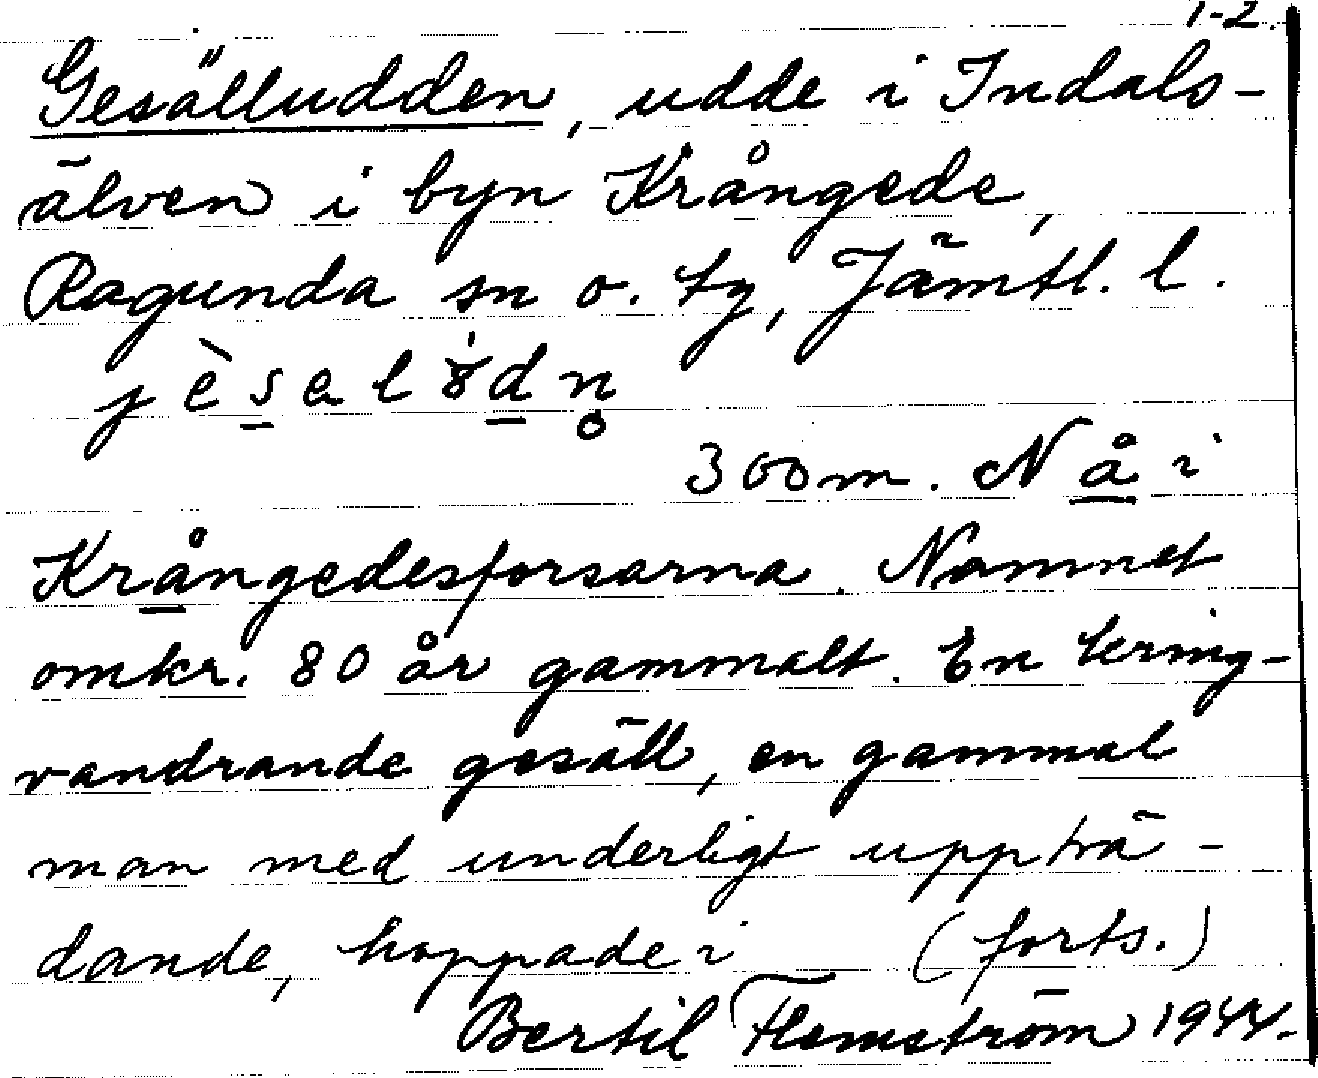 1-2.
Gesälludden, udde i Indals-
älven i byn Krångede,
Ragunda sn o. tg, Jämtl. l.
300 m. N å i
Krångedesforsarna. Namnet
omkr. 80 år gammalt. En kring-
vandrande gesäll, en gammal
man med underligt uppträ-
dande, hoppade i (forts.)
Bertil Flemström 1944.